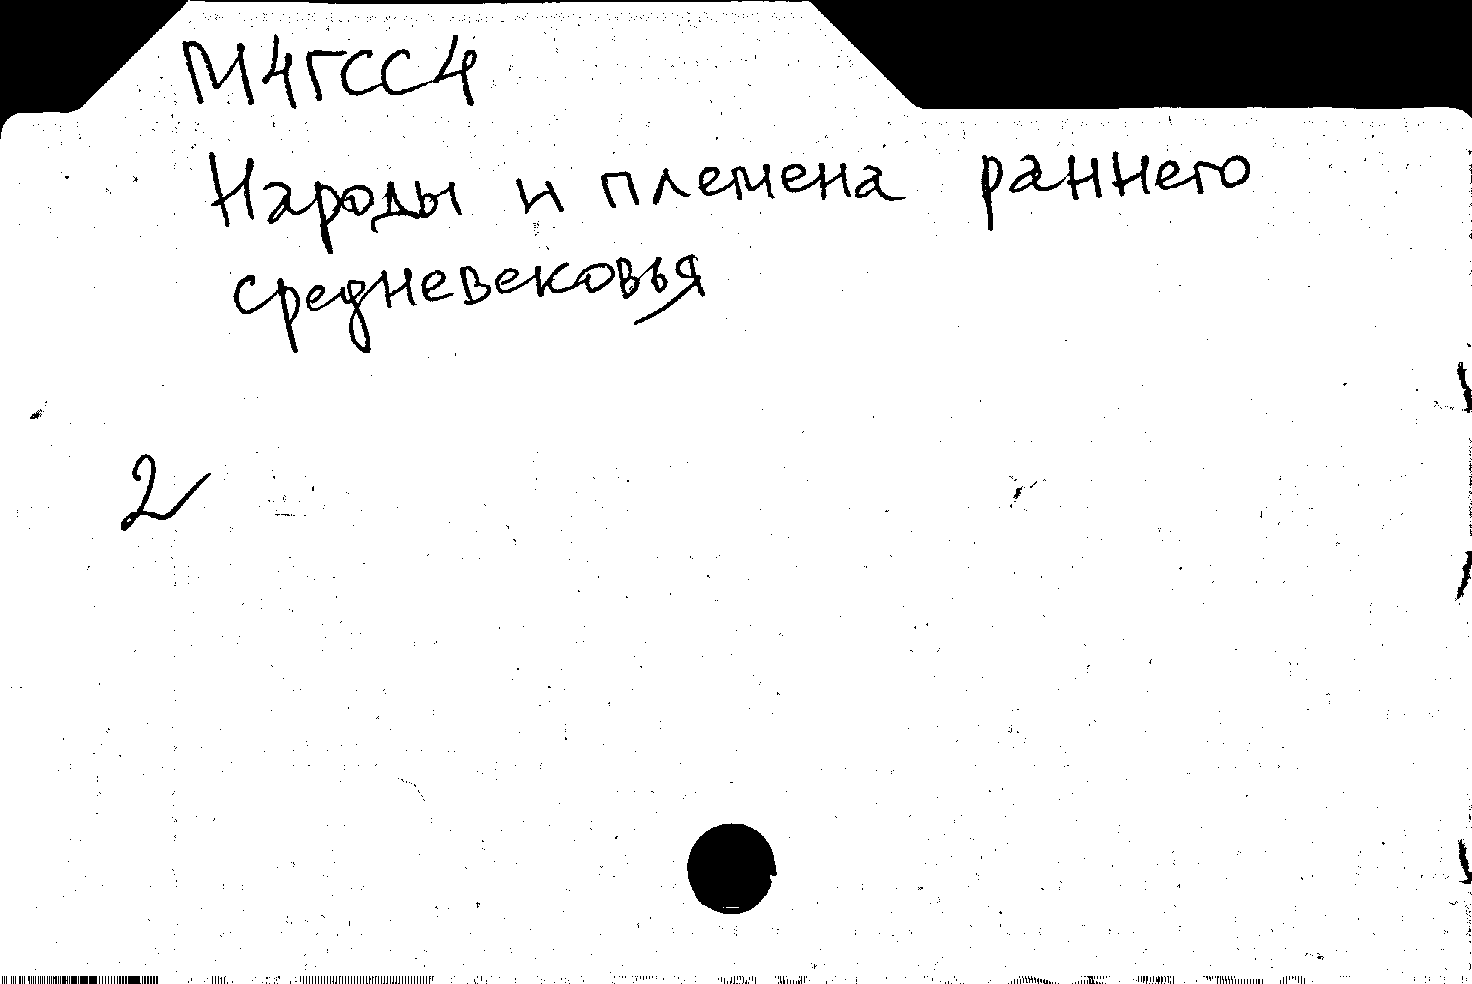 М4ГСС4
Народы и племена раннего
средневековья
2